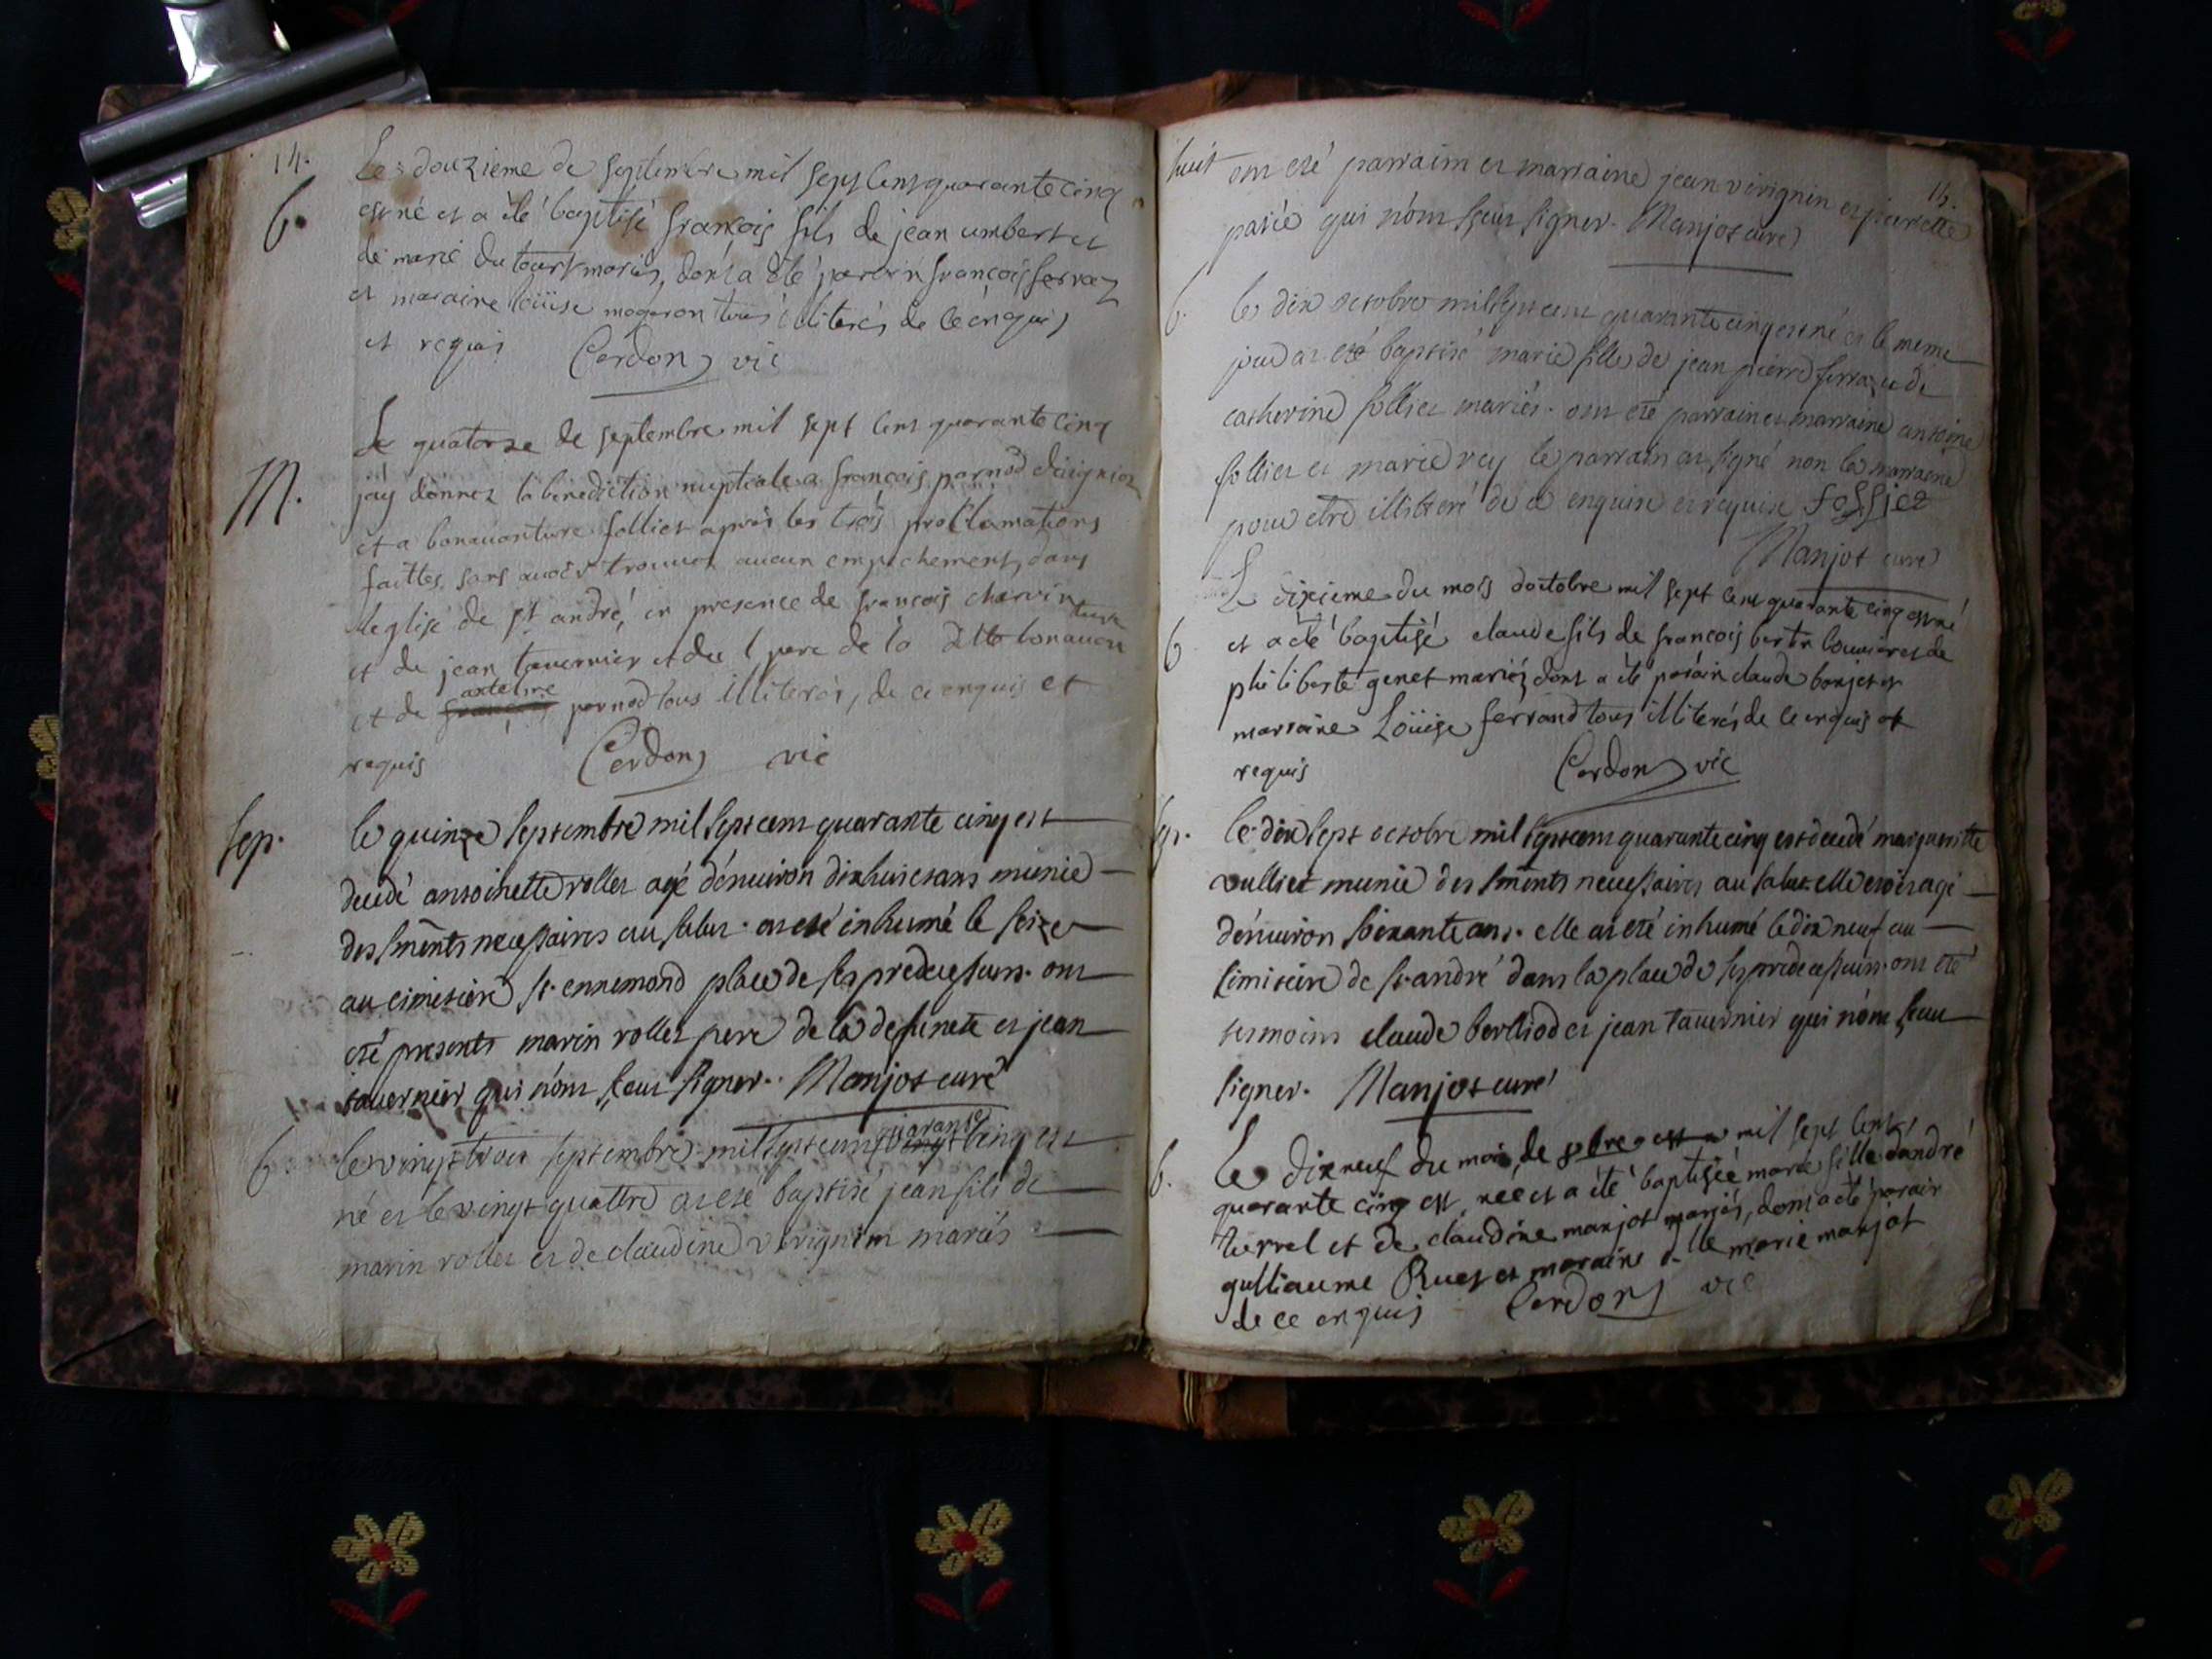 14.
Le douzieme de septembre mil sept cent quarante cinq
b.
est né et a été baptisé françois fils de jean umbert et
de marie du tour mariés, dont a été parain françois
et maraine loüise mogeron tous illiterés de ce enquis
et requis Cerdon vic
Le quatorze de septembre mil sept cent quarante cinq
M.
j'ay donnez la benediction nuptiale a françois pernod
et a bonavanture folliet apres les trois proclamations
faittes, sans avoir trouvez aucun empechement, dans
leglise de st andré, en presence de françois charvin
et de jean tavernier et du pere de la ditte bonauen
ture
et de antelme pernod tous illiterés, de ce enquis et
requis Cerdon vic
sep.
le quinze septembre mil sept cent quarante cinq est
decedé antoinette rollet agé d'enuiron dixhuict ans munie
des smênts necessaires au salut. at eté inhumé le seize
au cimitiere st. ennemond place de ses predecesseurs. ont
eté presents marin rollet pere de la defunte et jean
tavernier qui n'ont sceut signer. Manjot curé
b.
le vingt trois septembre mil sept cent quarante cinq est
né et le vingt quattre at eté baptisé jean fils de
marin rollet et de claudine virignin mariés
suit
15.
ont eté parrain et marraine jean virignin et pierrette
parié qui n'ont sceut signer. Manjot curé
b.
le dix octobre mil sept cent quarante cinq est né et le meme
jour at eté baptisé marie fille de jean pierre ferraz et de
catherine follier mariés. ont eté parrain et marraine antoine
follier et marie rey le parrain at signé non la marraine
pour etre illiteré de ce enquise et requise follier
Manjot curé
Le dixieme du mois d'octobre mil sept cent quarante cinq est né
b
et a eté baptisé claude fils de françois et de
philiberte genet mariéz dont a eté parain claude bonjet et
marraine Loüise ferrand tous illiterés de ce enquis et
requis Cerdon vic
le dix sept octobre mil sept cent quarante cinq est decedé margueritte
vulliet munie des smênts necessaires au salut elle etoit agé
d'enuiron soixante ans. elle at eté inhumé le dix neuf au
cimitiere de st. andré dans la place de ses predecesseurs. ont eté
temoins claude berlliod et jean tavernier qui n'ont sceu
signer. Manjot curé
b.
Le dixneuf du mois de mil sept cents
quarante cinq est née et a été baptisée marie fille d'andré
turrel et de claudine manjot mariés, dont a eté parain
gulliaume Ruet et maraine d.lle marie manjot
de ce enquis Cerdon vic